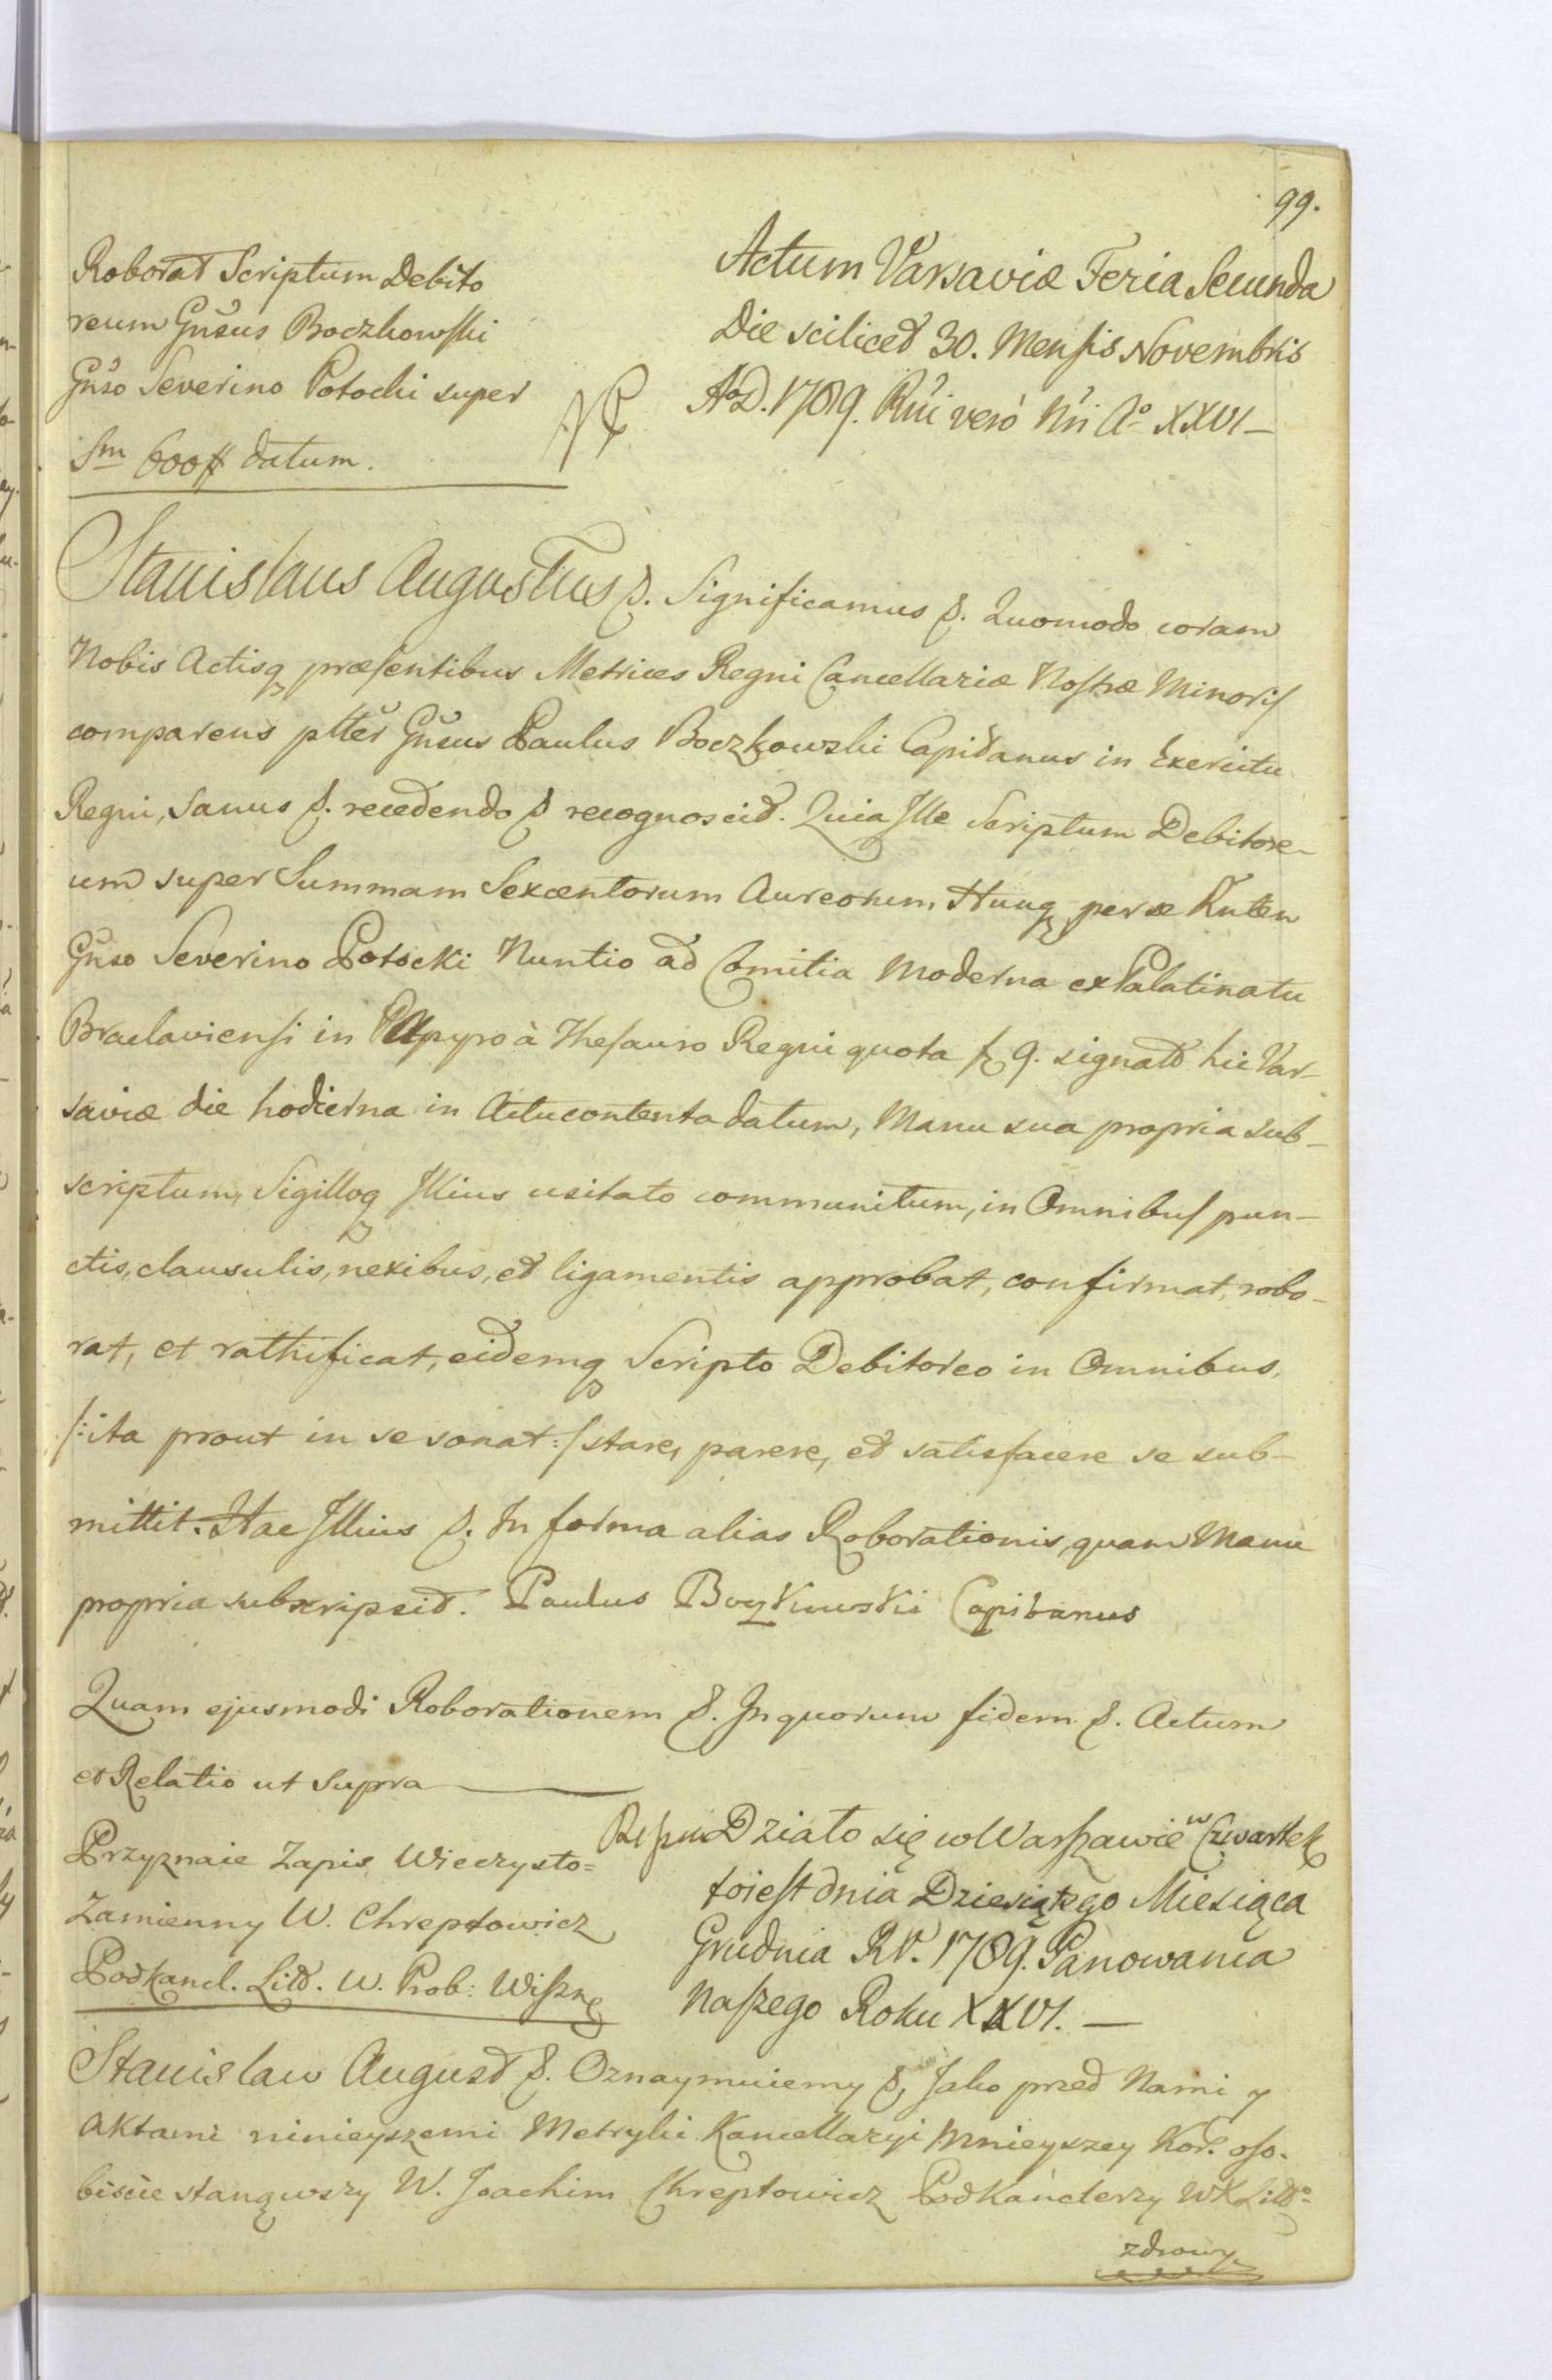 99.
Roborat Scriptum Debito
reum Gnsus Boczkowski
Gnso Severino Potocki super
Sm 600 # datum.
Actum Varsaviæ Feria Secunda
Die scilicet 30. Mensis Novembris
AoD. 1789. Rni verò Nri Ao XXVI —
Stanislaus Augustus &. Significamus &. Quomodo coram
Nobis Actisq præsentibus Metrices Regni Cancellariæ Nostræ Minoris
comparens ptter Gnsus Paulus Boczkowski Capitanus in Exercitu
Regni, Sanus &. recedendo & recognoscit. Quia Ille Scriptum Debitore-
um super Summam Sexcentorum Aureorum Hung per se Rnten
Gnso Severino Potocki Nuntio ad Comitia Moderna ex Palatinatu
Braclaviensi in Papyro à Thesauro Regni quota 9. signato hic Var-
saviæ die hodierna in Actu contenta datum, Manu sua propria sub-
scriptum, Sigilloq Illius usitato communitum, in Omnibus pun-
ctis, clausulis, nexibus, et ligamentis approbat, confirmat, robo-
rat, et rathificat, eidemq Scripto Debitoreo in Omnibus,
/:ita prout in se sonat:/ stare, parere, et satisfacere se sub-
mittit. Hac Illius &. In forma alias Roborationis, quam Manu
propria subscripsit. Paulus Boczkowski Capitanus
Quam ejusmodi Roborationem &. In quorum fidem &. Actum
et Relatio ut Supra
Przyznaie Zapis Wieczysto=
Zamienny W. Chreptowicz
Podkancl. Litt. W. Prob: Wiszn
Działo się w Warszawie w Czwartek
toiest dnia Dziesiątego Miesiąca
Grudnia RP. 1789. Panowania
naszego Roku XXVI. —
Stanisław August &. Oznaymuiemy &, Jako przed Nami y
Aktami ninieyszemi Metryki Kancellaryi Mnieyszey Kor. oso-
biście stanąwszy W. Joachim Chreptowicz Podkanclerzy WXLitt
zdrowy